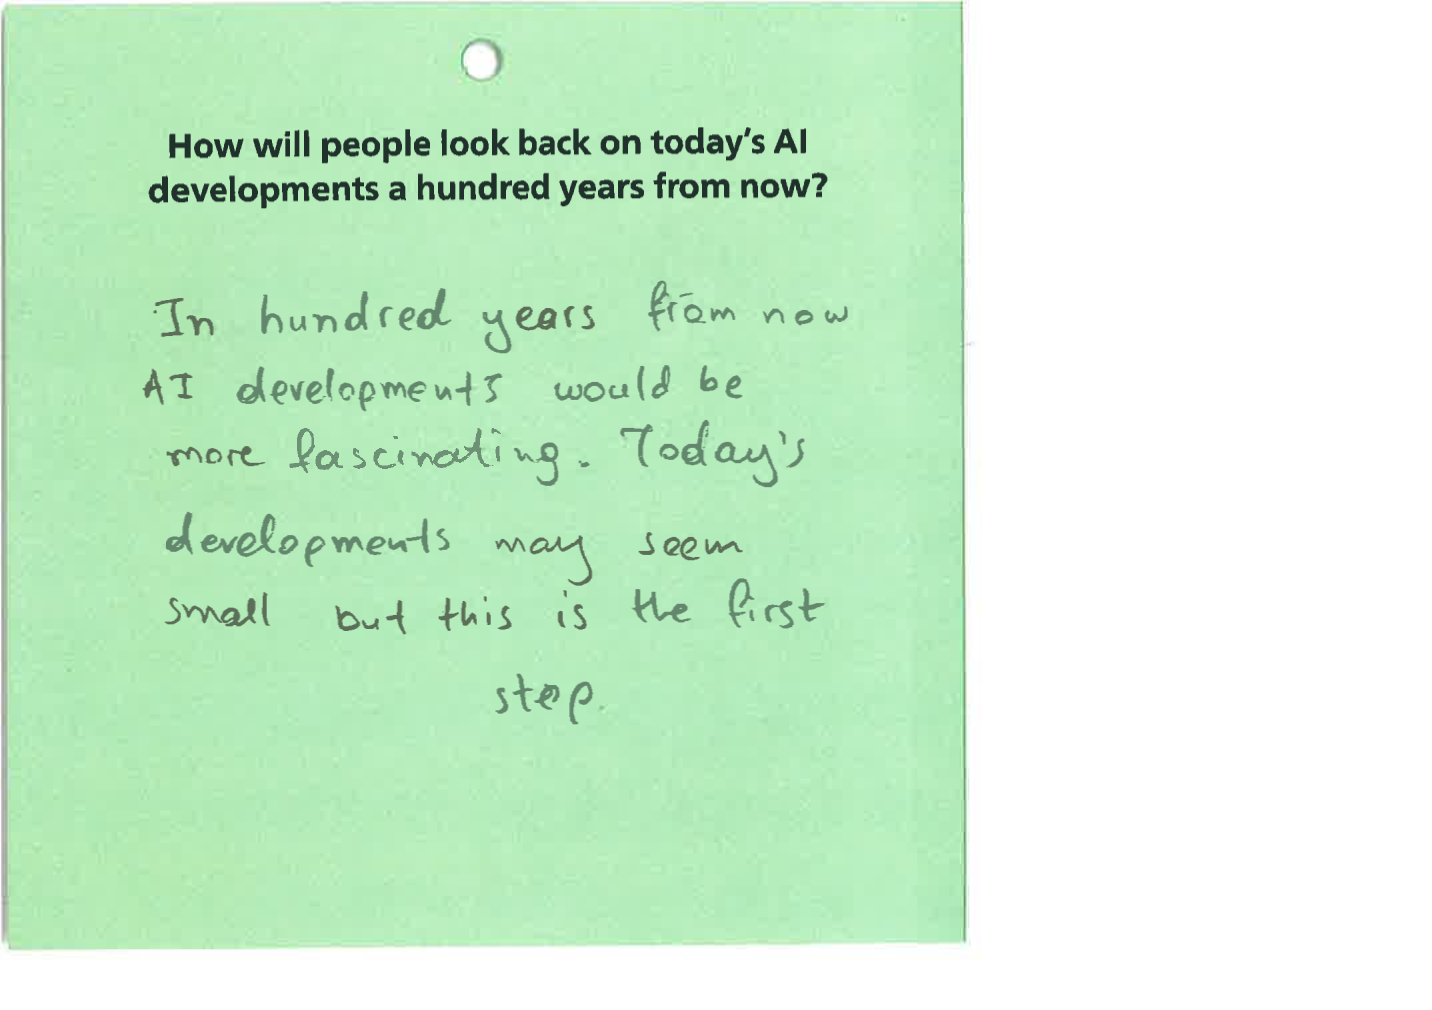 How will people look back on today's AI
developments a hundred years from now?
In hundred years from now
AI developments would be
more fascinating. Today's
developments may seem
small but this is the first
step.